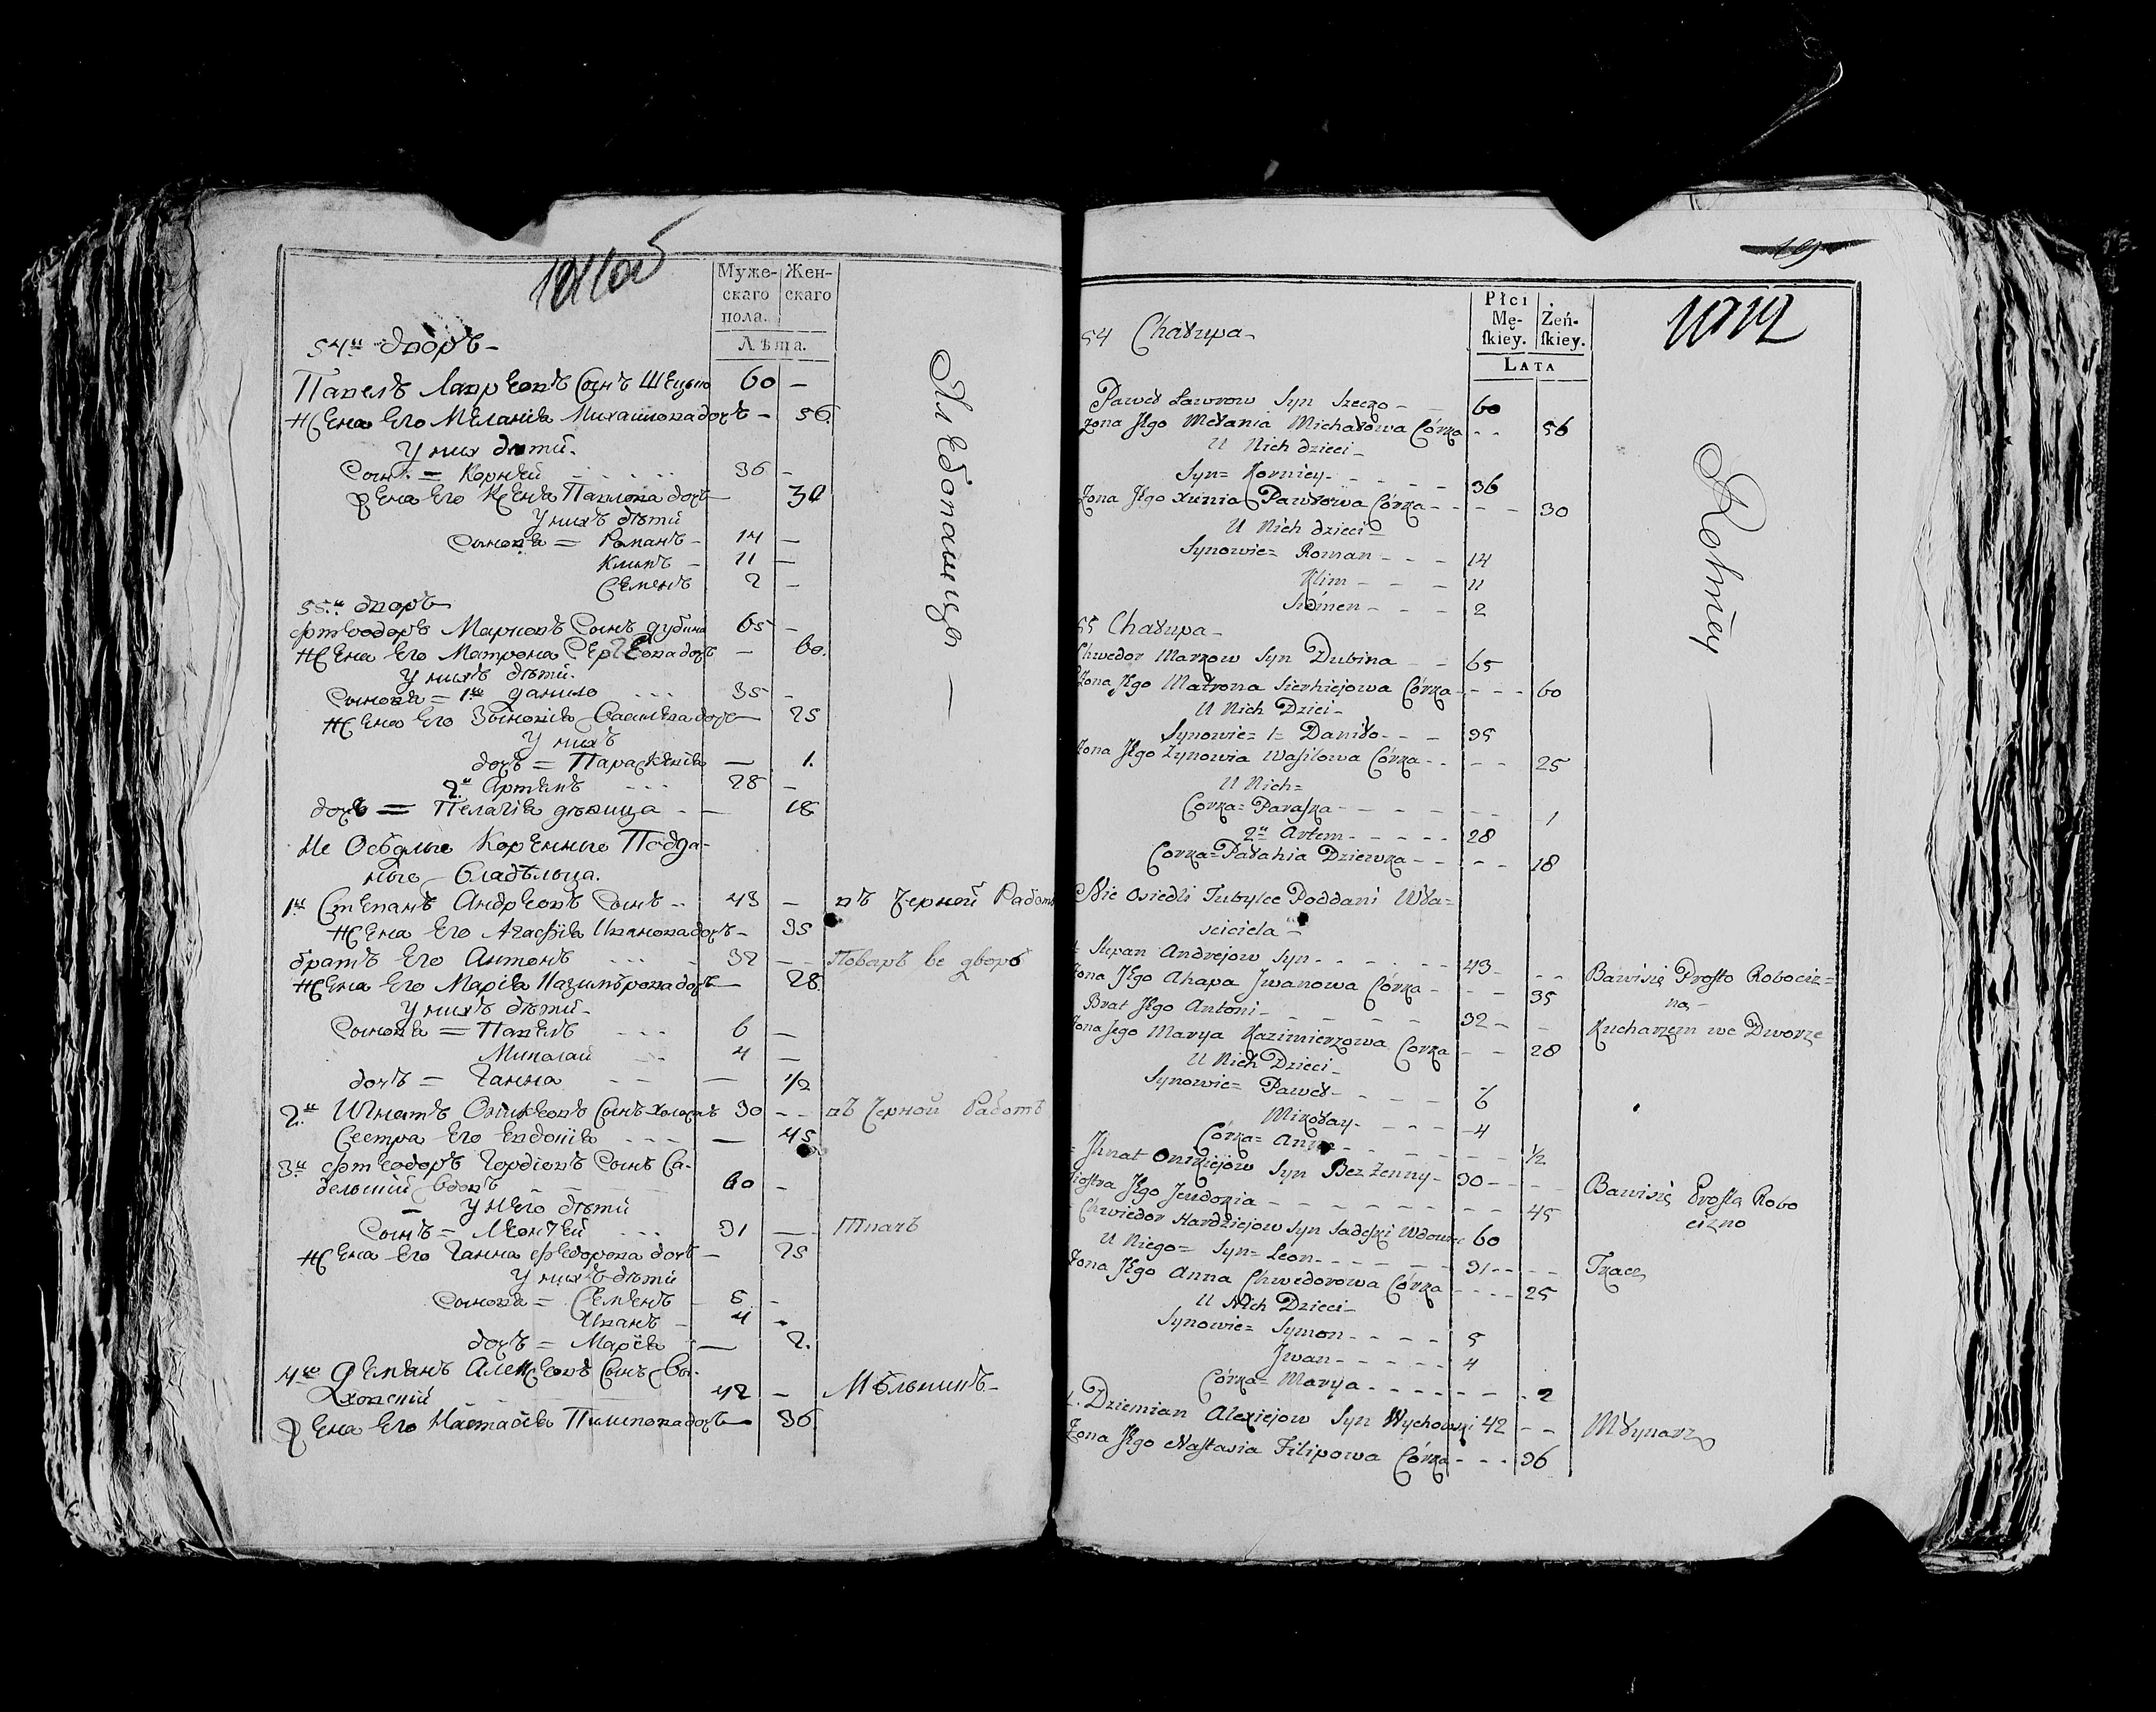 Муже-
скаго
пола.
Жен-
скаго
Лѣта.
54й дворъ
Павелъ Лавреовъ Сынъ Шецько 60 —
Жена Его Меланія Михайлова дочь — 56.
У них дѣти.
Сынъ = Корнѣй 36 —
Жена Его Ксенія Павлова дочь — 30
У нихъ дѣти
Сыновья = Романъ 14 —
Климъ 11 —
Семенъ 2 —
55й дворъ
Фтеодоръ Марковъ Сынъ Дубина 65 —
Жена Его Матрона Сергеова дочь — 60.
У нихъ дѣти.
Сыновья = 1й Данило 35 —
Жена Его Зыновія Василева дочь — 25
У нихъ
дочь = Параскевія — 1.
2й Артемъ 28 —
дочь = Пелагія дѣвица — 18
Не Осѣдлые Коренные Подда-
ные Владѣльца.
1й Степанъ Андреовъ Сынъ 43 — въ Черной Работѣ
Жена Его Агафія Иванова дочь — 35
братъ Его Антонъ 32 — Поваръ ве дворѣ
Жена Его Марія Казимѣрова дочь — 28
У нихъ дѣти
Сыновья = Павелъ 6 —
Миколай 4 —
дочь = Ганна — 1/2
2й Игнатъ Оникеовъ Сынъ Холостъ 30 — въ Черной Работѣ
Сестра Его Евдокія — 45
3й Фтеодоръ Гордіовъ Сынъ Са-
дельскій Вдовъ 60 —
У Него дѣти
Сынъ = Леонтей 31 — Ткачъ
Жена Его Ганна Федорова дочь — 25
У нихъ дѣти
Сыновья = Семенъ 5 —
Иванъ 4 —
дочь = Марія — 2.
4й Демянъ Алексеовъ Сынъ Вы-
ховскій 42 — Мѣльникъ
Жена Его Настасія Пилипова дочь — 36
Хлебопашцы —
Płci
Mę-
ſkiey.
Żeń-
ſkiey.
LATA
1012
54 Chałupa
Paweł Ławrow Syn Szeczo 60
Żona Jego Mełania Michałowa Córka 56
U Nich dzieci
Syn = Korniey 36
Żona Jego Xienia Pawłowa Córka 30
U Nich dzieci
Synowie = Roman 14
Klim 11
Siemen 2
55 Chałupa
Chwedor Markow Syn Dubina 65
Żona Jego Matrona Sierhiejowa Córka 60
U Nich Dzieci
Synowie = 1 = Daniło 35
Żona Jego Zynowia Waſilowa Córka 25
U Nich =
Corka = Paraſka 1
2й Artem 28
Corka = Pałahia Dziewka 18
Nie Osiedli Tubylce Poddani Wła=
sciciela
1 Stepan Andrejow Syn 43 Bawisię Prosto Robociz=
ną
Żona Jego Ahapa Jwanowa Córka 35
Brat Jego Antoni 32 Kucharzem we Dworze
Żona Jego Marya Kazimierzowa Corka 28
U Nich Dzieci
Synowie = Paweł 6
Mikołay 4
Córka = Anna 1/2
Jhnat Onikiejow Syn Bez Żenny 30 Bawisię Prosto Robo
cizno
Siostra Jego Jeudokia 45
Chwiedor Hardziejow Syn Sadelſki Wdowiec 60
U Niego = Syn = Leon 31 Tkacz
Żona Jego Anna Chwedorowa Córka 25
U Nich Dzieci
Synowie = Symon 5
Jwan 4
Córka = Marya 2
4. Dziemian Alexiejow Syn Wychowski 42 Młynarz
Żona Jego Naſtasia Filipowa Córka 36
Rolniey —